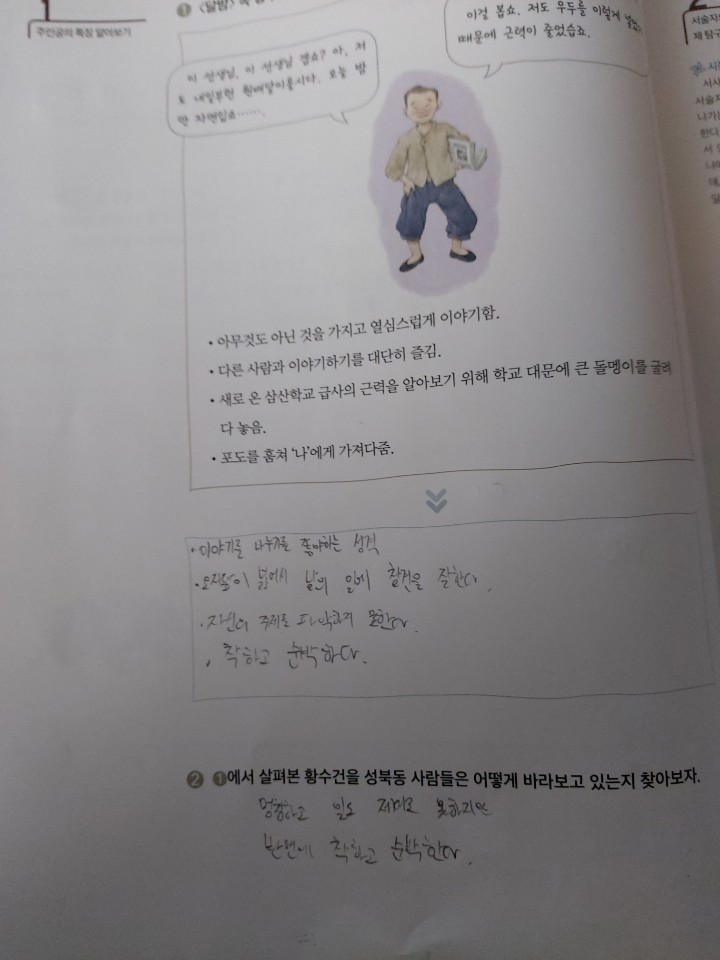 1
주인공의 특징 알아보기
❶ 〈달밤〉
이 선생님, 이 선생님 곕쇼? 아, 저
도 내일부턴 원배달이올시다. 오늘 밤
만 자면입쇼…….
이걸 봅쇼. 저도 우두를 이렇게
때문에 근력이 줄었습죠.
• 아무것도 아닌 것을 가지고 열심스럽게 이야기함.
• 다른 사람과 이야기하기를 대단히 즐김.
• 새로 온 삼산학교 급사의 근력을 알아보기 위해 학교 대문에 큰 돌멩이를 굴려
다 놓음.
• 포도를 훔쳐 '나'에게 가져다줌.
• 이야기를 나누기를 좋아하는 성격
• 오지랖이 넓어서 남의 일에 참견을 잘한다.
• 자신의 주제를 파악하지 못한다.
• 착하고 순박하다.
❷ ❶에서 살펴본 황수건을 성북동 사람들은 어떻게 바라보고 있는지 찾아보자.
멍청하고 일도 제대로 못하지만
반면에 착하고 순박한다.
2
서술자
제 탐구
서술자
나가는
한다
서